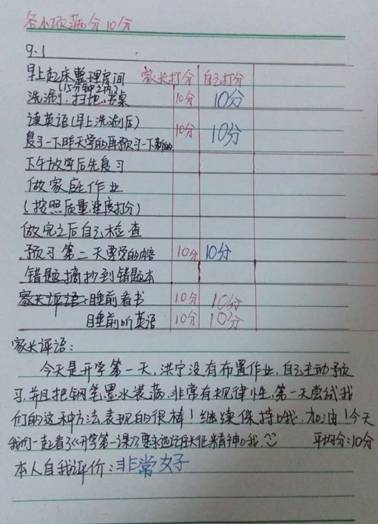 各小项满分10分
9.1
早上起床整理房间 家长打分 自己打分
(15分钟之内)
洗漱、扫地、 10分 10分
读英语(早上洗漱后) 10分 10分
复习一下昨天学的再预习一下新的
下午放学后先复习
做家庭作业
(按照质量速度打分)
做完之后自己检查
预习第二天要学的内容 10分 10分
错题摘抄到错题本
家长评语:睡前看书 10分 10分
目垂前听英语 10分 10分
家长评语:
今天是开学第一天,洪宁没有布置作业,自己主动预
习,并且把钢笔墨水装满,非常有规律性,第一天尝试我
们的这种方法表现的很棒!继续保持哦,加油!今天
我们一起看了《开学第一课》 精神哦 平均分:10分
本人自我评价:非常好